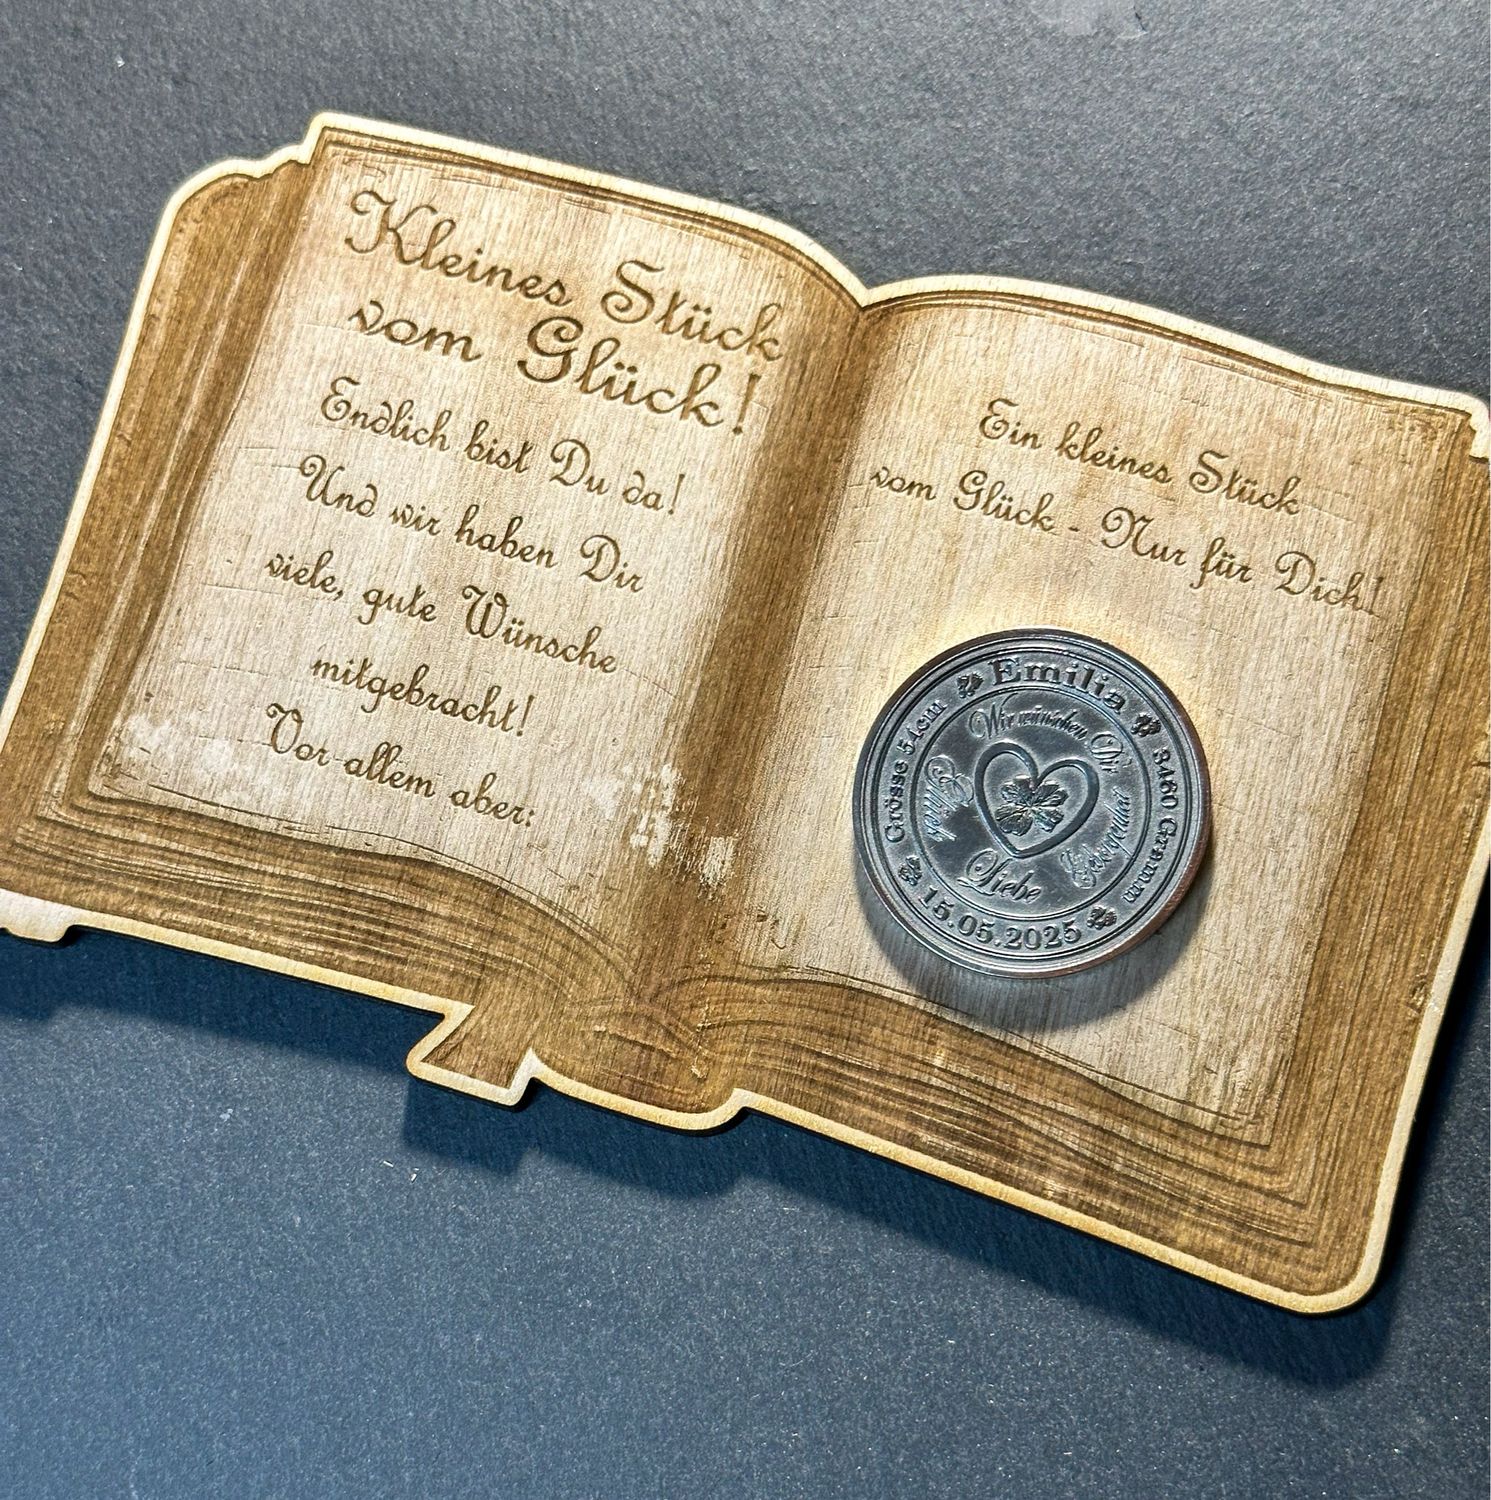 Kleines Stück
vom Glück!
Endlich bist Du da!
Und wir haben Dir
viele, gute Wünsche
mitgebracht!
Vor allem aber:
Ein kleines Stück
vom Glück - Nur für Dich!
Emilia
Grösse 51cm
3460 Gramm
15.05.2025
Wir wünschen Dir
Geborgenheit
Liebe